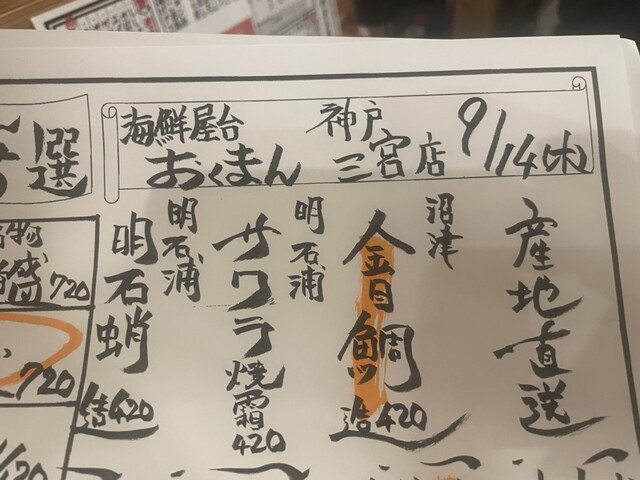 海鮮屋台
おくまん
神戸
三宮店
9/14(木)
産地直送
沼津
金目鯛
造420
明石浦
サワラ焼霜
420
明石浦
明石蛸
造420
選
物
盛720
720